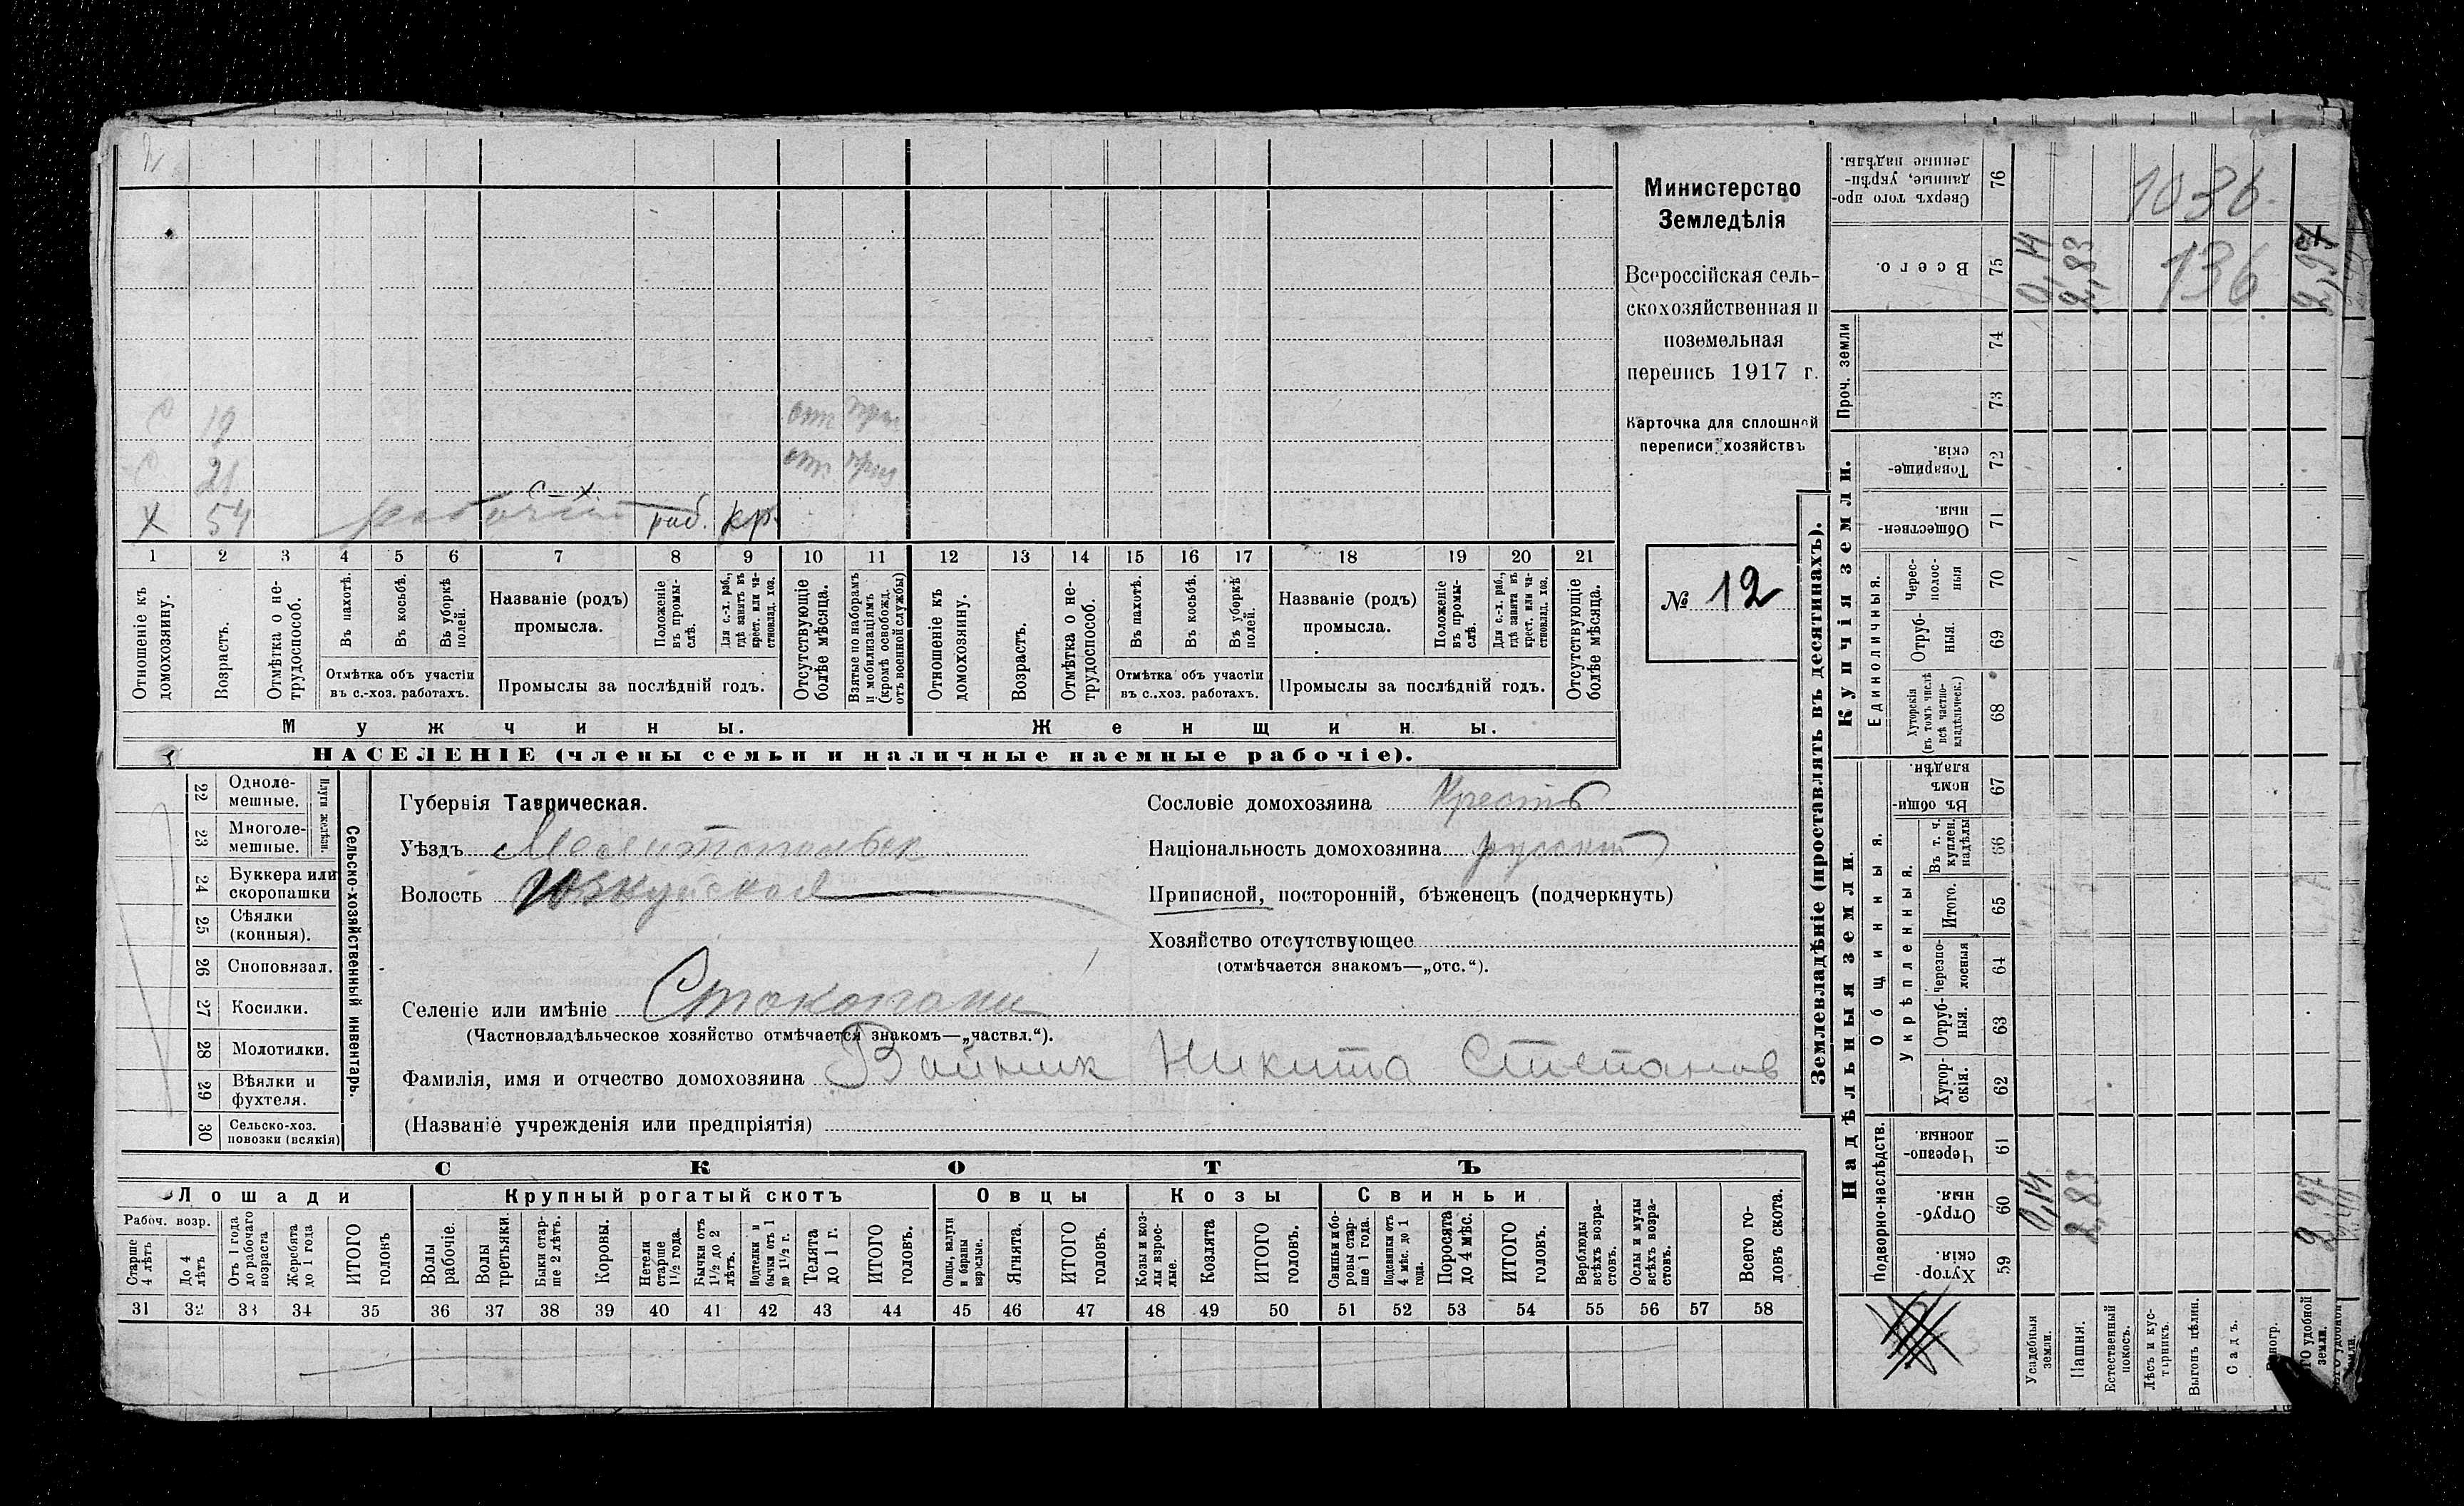 2
Министерство
Земледѣлія
Всероссійская сель-
скохозяйственная и
поземельная
перепись 1917 г.
Карточка для сплошной
переписи хозяйствъ
№ 12
С 19 отс
С 21 отс
с-х.
X 54 рабочій раб. кр.
1 2 3 4 5 6 7 8 9 10 11 12 13 14 15 16 17 18 19 20 21
Отношеніе къ домохозяину.
Возрастъ.
Отмѣтка о не-трудоспособ.
Въ пахотѣ.
Въ косьбѣ.
Въ уборкѣ полей.
Отмѣтка объ участіи
въ с.-хоз. работахъ.
Названіе (родъ)
промысла.
Положеніе въ промы-слѣ.
Для с.-х. раб., гдѣ занятъ въ крест. или ча-стновлад. хоз.
Промыслы за послѣдній годъ.
Отсутствующіе болѣе мѣсяца.
Взятые по наборамъ и мобилизаціямъ (кромѣ освобожд. отъ военной службы)
Отношеніе къ домохозяину.
Возрастъ.
Отмѣтка о не-трудоспособ.
Въ пахотѣ.
Въ косьбѣ.
Въ уборкѣ полей.
Отмѣтка объ участіи
въ с.-хоз. работахъ.
Названіе (родъ)
промысла.
Положеніе въ промы-слѣ.
Для с.-х. раб., гдѣ занята въ крест. или ча-стновлад. хоз.
Промыслы за послѣдній годъ.
Отсутствующіе болѣе мѣсяца.
Мужчины.
Женщины.
НАСЕЛЕНІЕ (члены семьи и наличные наемные рабочіе).
Сельско-хозяйственный инвентарь.
Плуги желѣзн.
22 Одноле-
мешные.
23 Многоле-
мешные.
24 Буккера или
скоропашки
25 Сѣялки
(конныя).
26 Сноповязал.
27 Косилки.
28 Молотилки.
29 Вѣялки и
фухтеля.
30 Сельско-хоз.
повозки (всякія)
Губернія Таврическая.
Уѣздъ Мелитопольск
Волость Юзкуйская
Селеніе или имѣніе Стокопани
(Частновладѣльческое хозяйство отмѣчается знакомъ—„частвл.“).
Фамилія, имя и отчество домохозяина Войник Никита Степанов
(Названіе учрежденія или предпріятія)
Сословіе домохозяина Крест
Національность домохозяина русскій
Приписной, посторонній, бѣженецъ (подчеркнуть)
Хозяйство отсутствующее
(отмѣчается знакомъ—„отс.“).
СКОТЪ
Лошади
Крупный рогатый скотъ
Овцы
Козы
Свиньи
Рабоч. возр.
Старше 4 лѣтъ
До 4 лѣтъ
Отъ 1 года до рабочаго возраста
Жеребята до 1 года
ИТОГО головъ
Волы рабочіе.
Волы третьяки.
Быки стар-ше 2 лѣтъ.
Коровы.
Нетели старше 1½ года.
Бычки отъ 1½ до 2 лѣтъ.
Подтелки и бычки отъ 1 до 1½ г.
Телята до 1 г.
ИТОГО головъ.
Овцы, валухи и бараны взрослые.
Ягнята.
ИТОГО головъ.
Козы и коз-лы взрос-лые.
Козлята
ИТОГО головъ.
Свиньи и бо-ровы стар-ше 1 года.
Подсвинки отъ 4 мѣс. до 1 года.
Поросята до 4 мѣс.
ИТОГО головъ.
Верблюды всѣхъ возра-стовъ.
Ослы и мулы всѣхъ возра-стовъ.
Всего го-ловъ скота.
31 32 33 34 35 36 37 38 39 40 41 42 43 44 45 46 47 48 49 50 51 52 53 54 55 56 57 58
Землевладѣніе (проставлять въ десятинахъ).
Надѣльныя земли.
Купчія земли.
Проч. земли
Подворно-наслѣдств.
Общинныя.
Укрѣпленныя.
Единоличныя.
Сверхъ того про-данные, укрѣп-ленные надѣлы. 76
1036
Всего. 75 0,14 2,83 2,97
136
74
73
Товарище-скія. 72
Обществен-ныя. 71
Черес-полос-ныя 70
Отруб-ныя. 69
Хуторскія (въ томъ числѣ всѣ частно-владѣльческ.) 68
Въ общи-номъ владѣн. 67
Въ т. ч. куплен. надѣлы 66
Итого. 65
Черезпо-лосныя 64
Отруб-ныя. 63
Хутор-скія. 62
Черезпо-лосныя. 61
Отруб-ныя. 60 0,14 2,83 2,97
Хутор-скія. 59
Усадебныя земли.
Пашня.
Естественный покосъ.
Лѣсъ и кус-тарникъ.
Выгонъ цѣлин.
Садъ.
удобной земли.